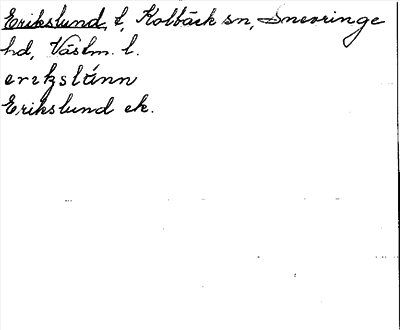 Erikslund, t, Kolbäck sn, Snevringe
hd, Västm. l.
erikslúnn
Erikslund ek.